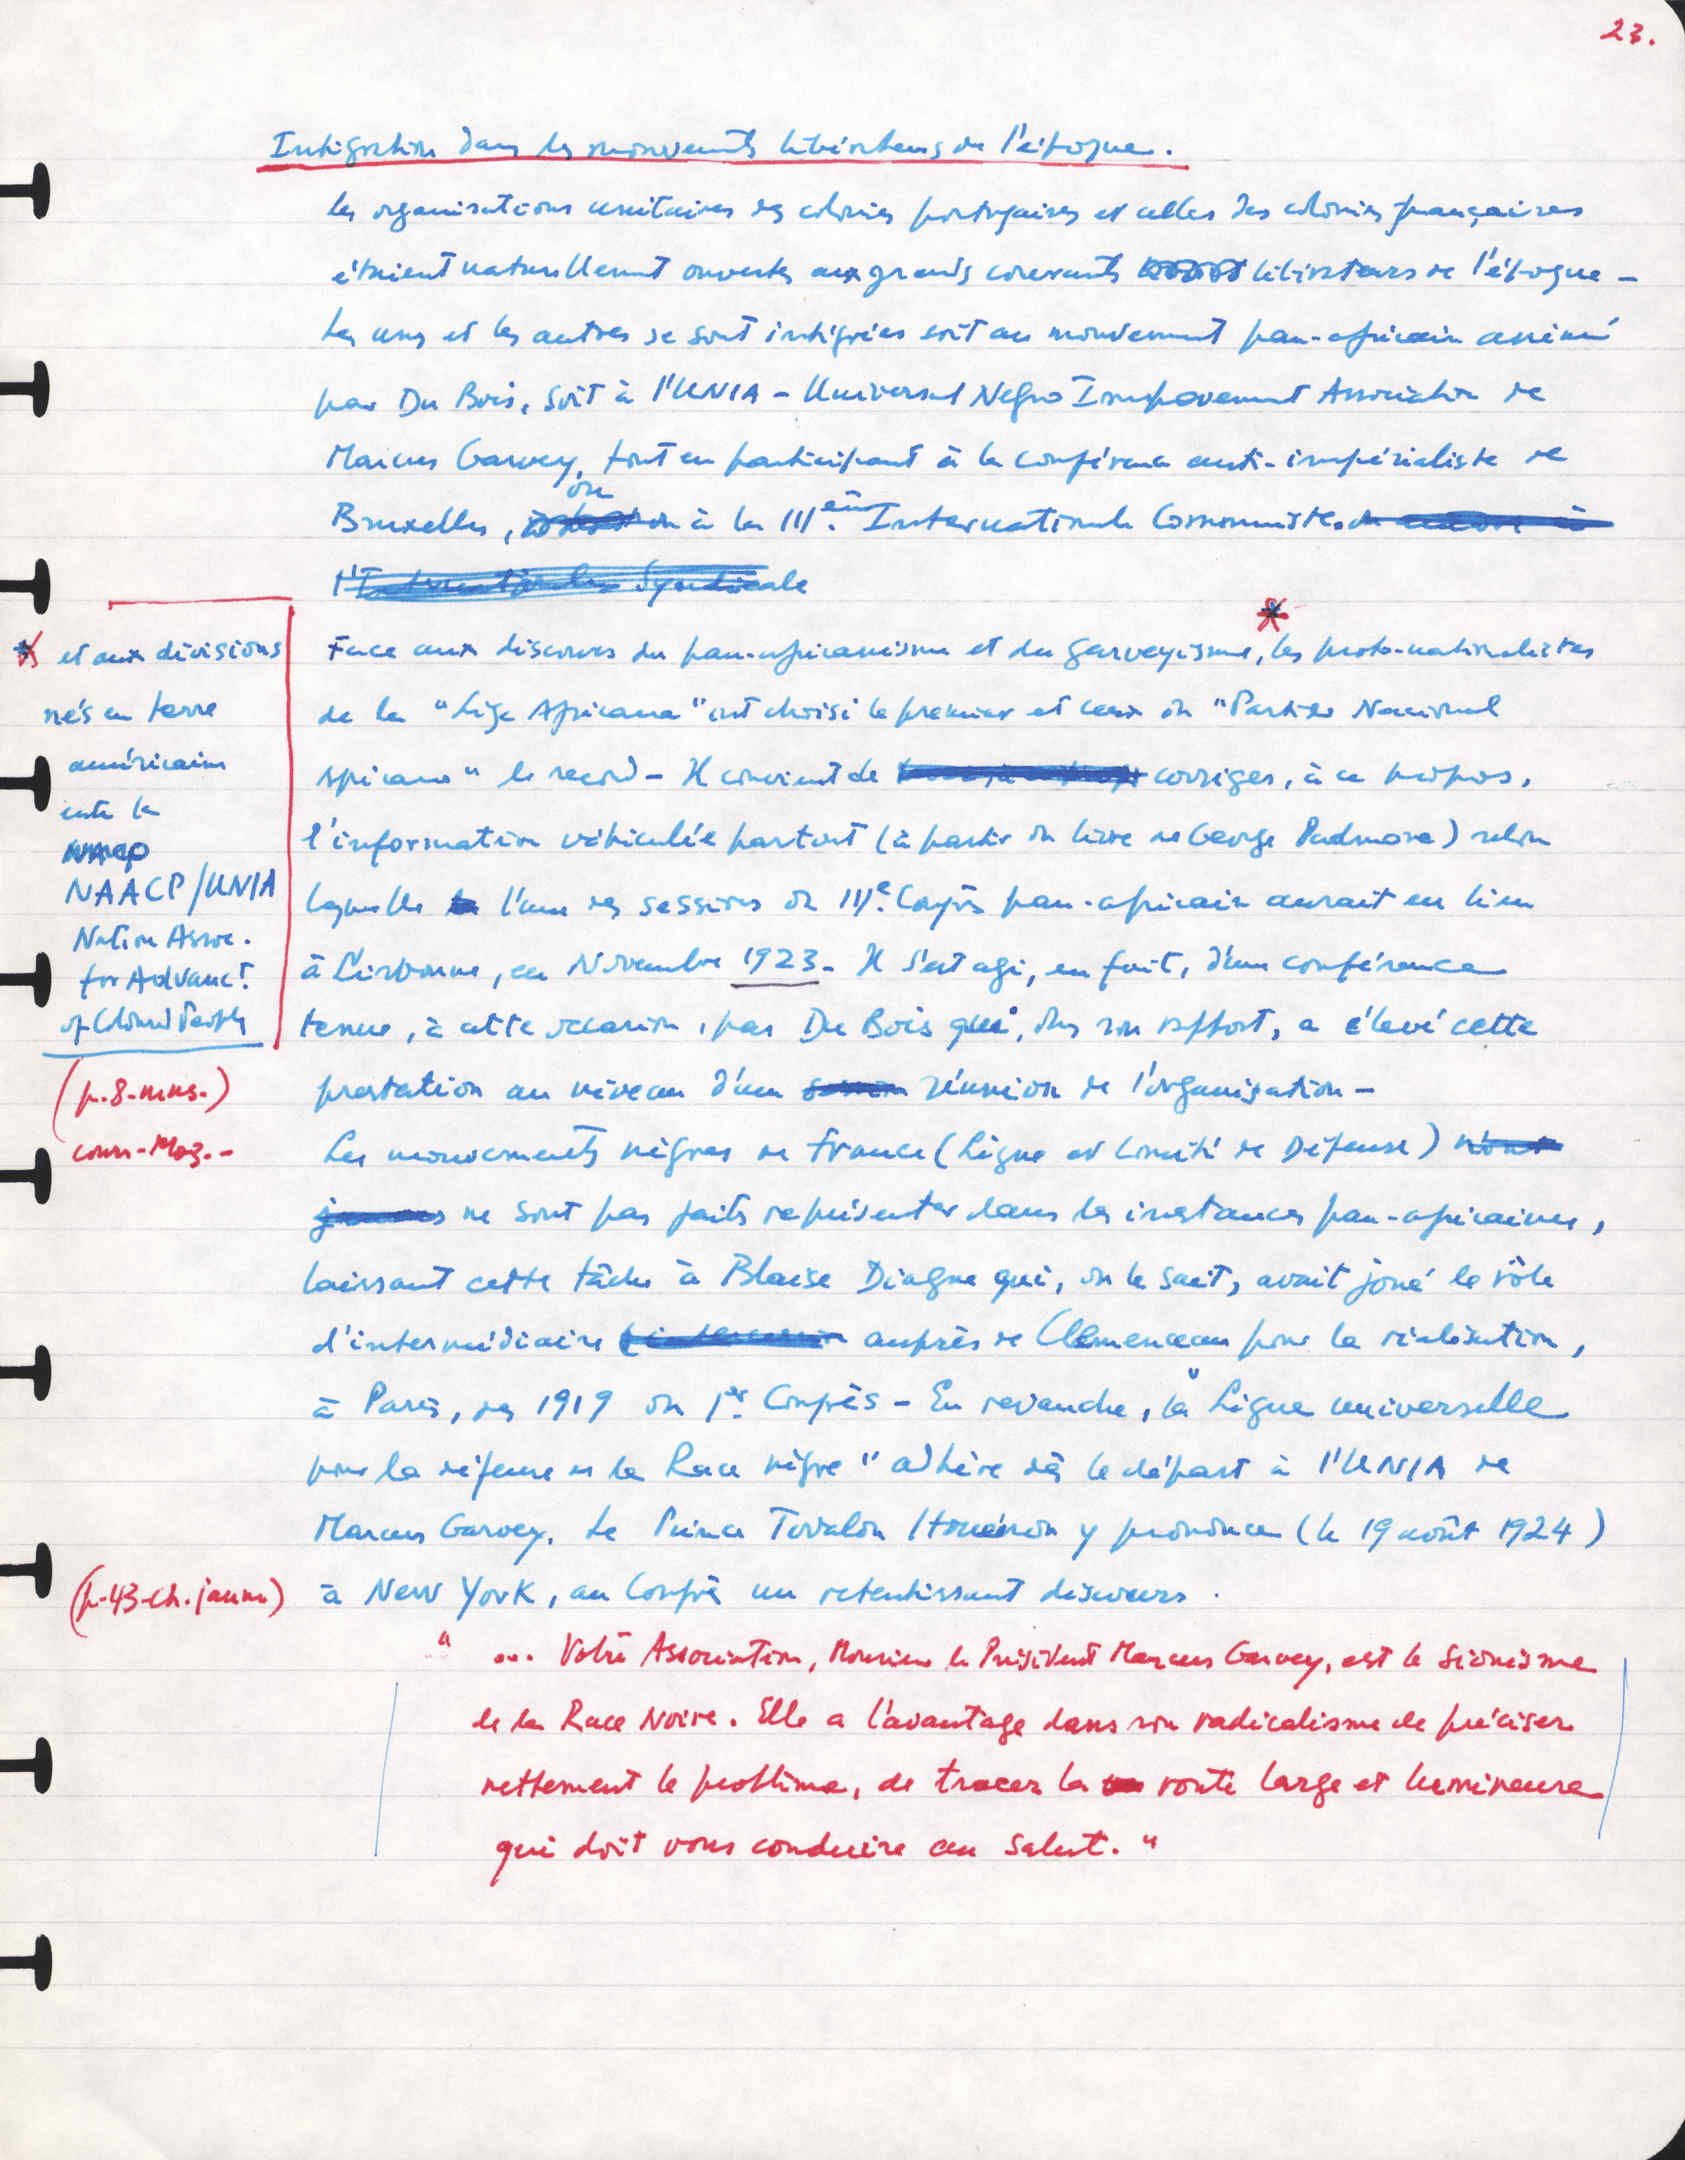 23.
Intégration dans les mouvements libérateurs de l'époque.
les organisations unitaires des colonies portugaises et celles des colonies françaises
étaient naturellement ouvertes aux grands courants libérateurs de l'époque -
Les uns et les autres se sont intégrées soit au mouvement pan-africain animé
par Du Bois, soit à l'UNIA - Universal Negro Improvement Association de
Marcus Garvey, tout en participant à la conférence anti-impérialiste de
ou
Bruxelles, ou à la IIIème Internationale Communiste. ou encore à
l'Internationale Syndicale
* et aux divisions
nés en terre
américaine
entre la
NAACP
NAACP/UNIA
Nation Assoc.
for Advanct.
of Colored People
(p.8-mns.)
cours-Moz.-
Face aux discours du pan-africanisme et du garveyisme,* les proto-nationalistes
de la "Liga Africana" ont choisi le premier et ceux du "Partido Nacional
Africano" le second - Il convient de corriger, à ce propos,
l'information véhiculée partout (à partir du livre de George Padmore) selon
laquelle l'une des sessions du IIIe. Congrès pan-africain aurait eu lieu
à Lisbonne, en Novembre 1923. Il s'est agi, en fait, d'une conférence
tenue, à cette occasion, par Du Bois qui, dans son rapport, a élevé cette
prestation au niveau d'une réunion de l'organisation -
Les mouvements nègres de France (Ligue et Comité de Défense) n'ont
jamais ne sont pas faits représenter dans les instances pan-africaines,
laissant cette tâche à Blaise Diagne qui, on le sait, avait joué le rôle
d'intermédiaire auprès de Clemenceau pour la réalisation,
à Paris, dès 1919 du 1er. Congrès - En revanche, la "Ligue universelle
pour la défense de la Race nègre" adhère dès le départ à l'UNIA de
Marcus Garvey. Le Prince Tovalou Houénou y prononce (le 19 août 1924)
(p-43-ch. jaune) à New York, au Congrès un retentissant discours.
" ... Votre Association, Monsieur le Président Marcus Garvey, est le sionisme
de la Race Noire. Elle a l'avantage dans son radicalisme de préciser
nettement le problème, de tracer la route large et lumineuse
qui doit vous conduire au salut. "